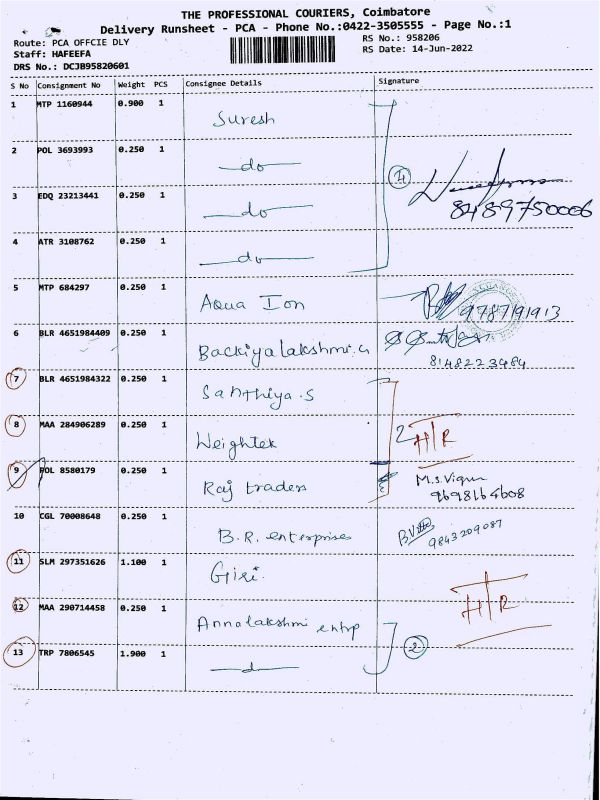 THE PROFESSIONAL COURIERS, Coimbatore
Delivery Runsheet - PCA - Phone No.:0422-3505555 - Page No.:1
Route: PCA OFFCIE DLY
RS No.: 958206
Staff: HAFEEFA
RS Date: 14-Jun-2022
DRS No.: DCJB95820601
S No Consignment No Weight PCS Consignee Details Signature
1 MTP 1160944 0.900 1 Suresh
2 POL 3693993 0.250 1 do
4
3 EDQ 23213441 0.250 1 do 8489750006
4 ATR 3108762 0.250 1 do
5 MTP 684297 0.250 1 Aqua Ion 9787191913
6 BLR 4651984409 0.250 1 Backiyalakshmi.G 8148223484
7 BLR 4651984322 0.250 1 Santhiya.S
8 MAA 284906289 0.250 1 Weightek 2 H/R
9 POL 8580179 0.250 1 Raj traders M.S.Vignu 9698164608
10 CGL 70008648 0.250 1 B.R. enterprises 9843209087
11 SLM 297351626 1.100 1 Giri.
12 MAA 290714458 0.250 1 Annalakshmi entrp H/R
13 TRP 7806545 1.900 1 do 2